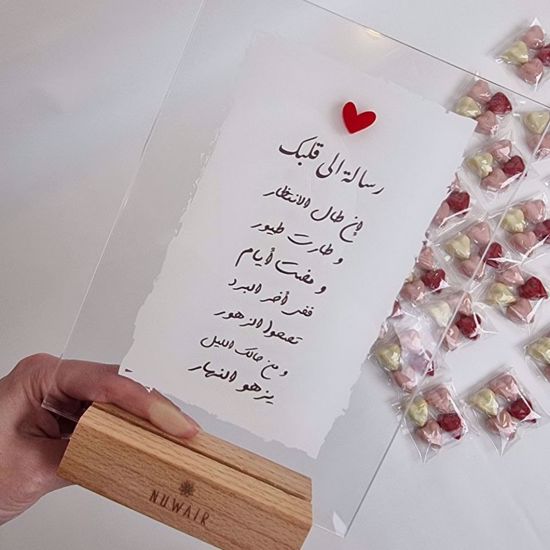 رسالة إلى قلبك
إن طال الانتظار
و طارت طيور
و مضت أيام
ففي أخر البرد
تصحوا الزهور
و من حالك الليل
يزهو النهار
NUWAIR